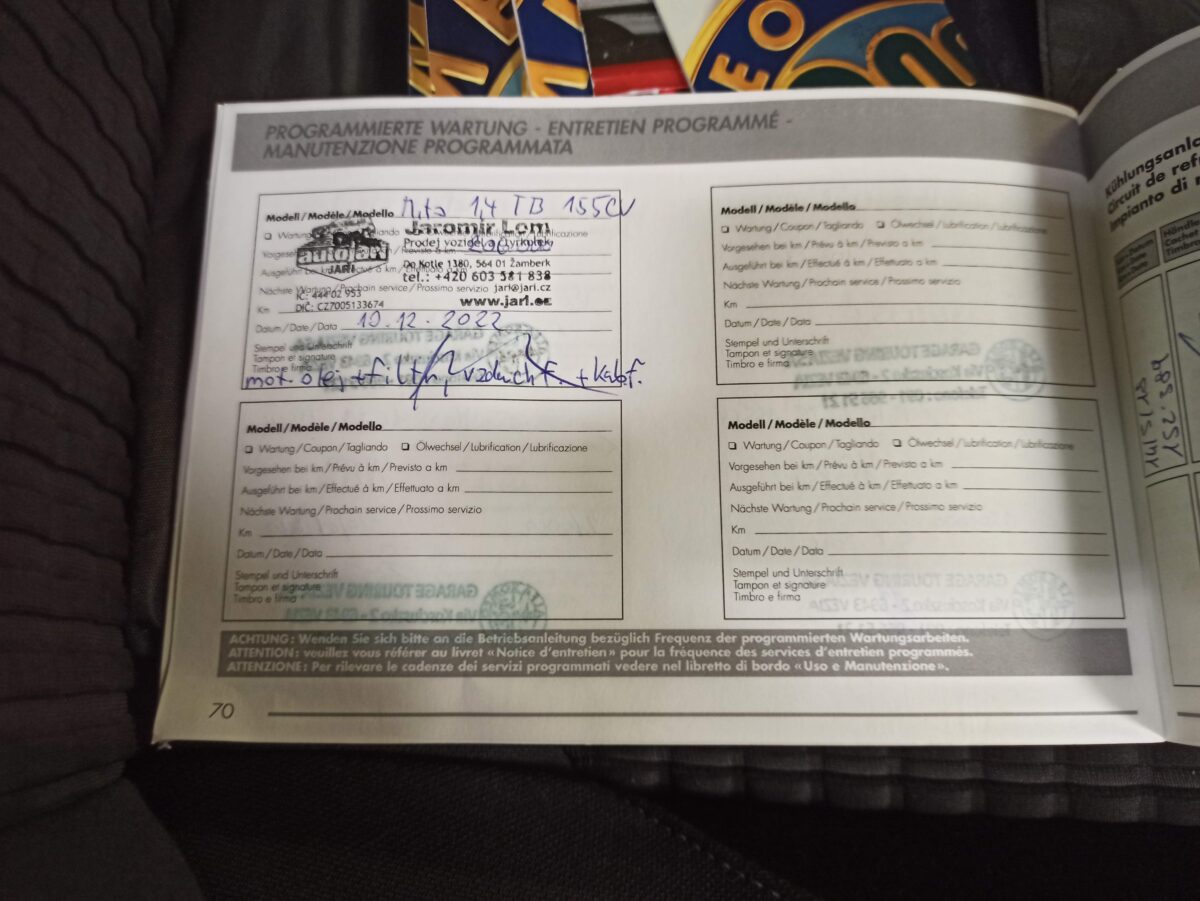 PROGRAMMIERTE WARTUNG - ENTRETIEN PROGRAMMÉ -
MANUTENZIONE PROGRAMMATA
Modell/Modèle/Modello Mito 1,4 TB 155CV
Jaromír Lom
Prodej vozidel a čtyřkolek
autojari
JARI
Do Kotle 1380, 564 01 Žamberk
tel.: +420 603 581 838
Nächste Wartung/Prochain service/Prossimo servizio jari@jari.cz
IČ: 444 02 953
DIČ: CZ7005133674
www.jari.cz
Km
Datum/Date/Data 19.12.2022
Stempel und Unterschrift
Tampon et signature
Timbro e firma
mot. olej + filtr, vzduch F. + kab. f.
Modell/Modèle/Modello
Wartung/Coupon/Tagliando Ölwechsel/Lubrification/Lubrificazione
Vorgesehen bei km/Prévu à km/Previsto a km
Ausgeführt bei km/Effectué à km/Effettuato a km
Nächste Wartung/Prochain service/Prossimo servizio
Km
Datum/Date/Data
Stempel und Unterschrift
Tampon et signature
Timbro e firma
Modell/Modèle/Modello
Wartung/Coupon/Tagliando Ölwechsel/Lubrification/Lubrificazione
Vorgesehen bei km/Prévu à km/Previsto a km
Ausgeführt bei km/Effectué à km/Effettuato a km
Nächste Wartung/Prochain service/Prossimo servizio
Km
Datum/Date/Data
Stempel und Unterschrift
Tampon et signature
Timbro e firma
Modell/Modèle/Modello
Wartung/Coupon/Tagliando Ölwechsel/Lubrification/Lubrificazione
Vorgesehen bei km/Prévu à km/Previsto a km
Ausgeführt bei km/Effectué à km/Effettuato a km
Nächste Wartung/Prochain service/Prossimo servizio
Km
Datum/Date/Data
Stempel und Unterschrift
Tampon et signature
Timbro e firma
ACHTUNG: Wenden Sie sich bitte an die Betriebsanleitung bezüglich Frequenz der programmierten Wartungsarbeiten.
ATTENTION: veuillez vous référer au livret «Notice d'entretien» pour la fréquence des services d'entretien programmés.
ATTENZIONE: Per rilevare le cadenze dei servizi programmati vedere nel libretto di bordo «Uso e Manutenzione».
70